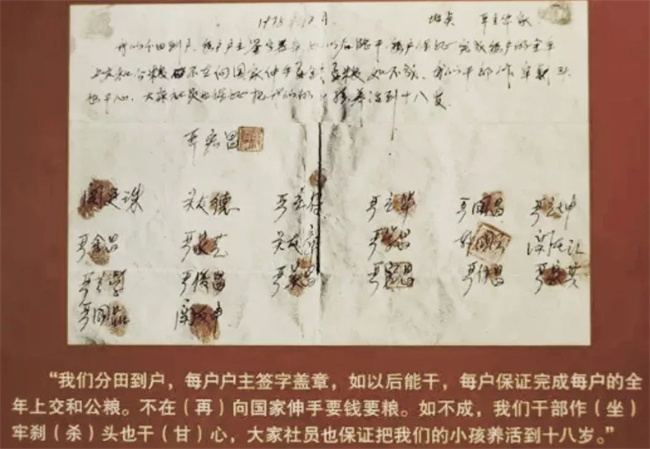 1978年12月 地点 严立华家
我们分田到户,每户户主签字盖章,如以后能干,每户保证完成每户的全年
上交和公粮,不在向国家伸手要钱要粮,如不成,我们干部作牢刹头
也干心,大家社员也保证把我们的小孩养活到十八岁。
严宏昌
关廷珠 关友德 严立符 严立华 严国昌 严立坤
严金昌 严家芝 关友章 严学昌 韩国云 关友江
严立学 严俊昌 严美昌 严付昌 严家其
严国品 关友申
“我们分田到户,每户户主签字盖章,如以后能干,每户保证完成每户的全
年上交和公粮。不在(再)向国家伸手要钱要粮。如不成,我们干部作(坐)
牢刹(杀)头也干(甘)心,大家社员也保证把我们的小孩养活到十八岁。”